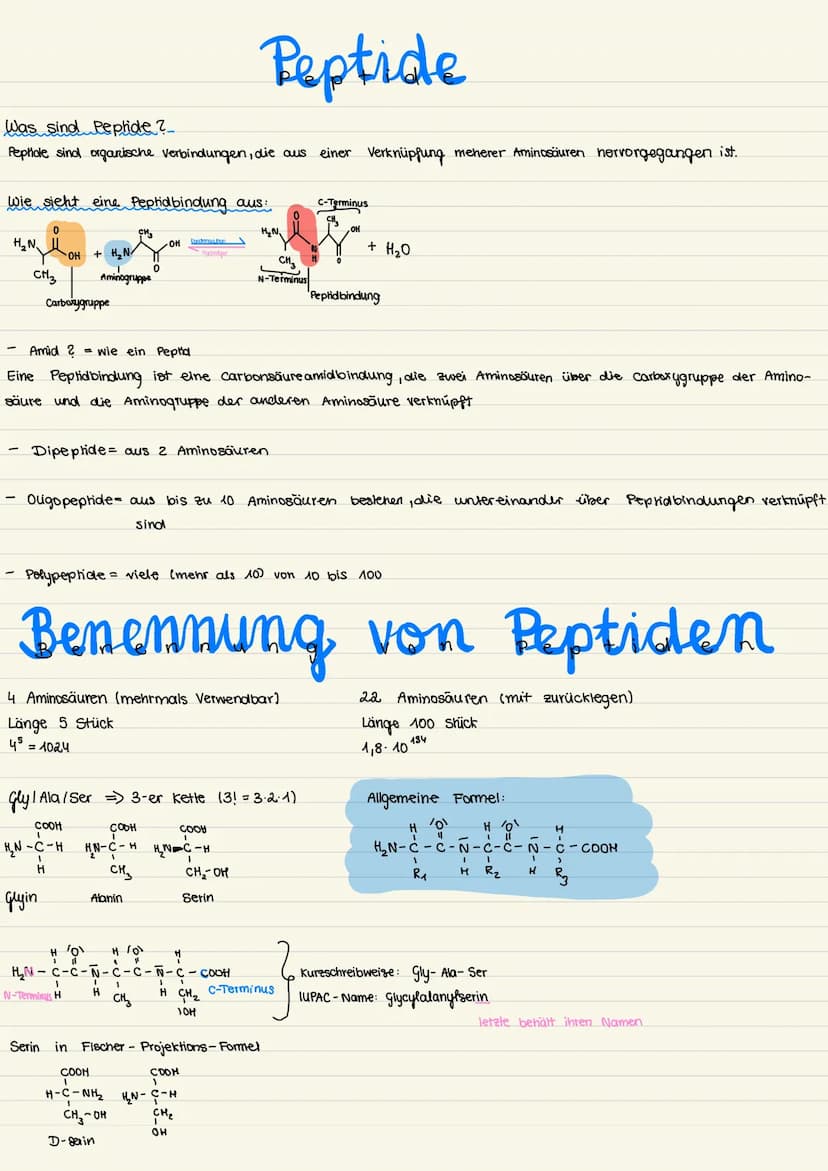 Peptide
Was sind Peptide?
Peptide sind organische Verbindungen, die aus einer Verknüpfung meherer Aminosäuren hervorgegangen ist.
Wie sieht eine Peptidbindung aus:
C-Terminus
H₂N O OH CH₃ + H₂N CH₃ OH O Kondensation H₂N O CH₃ N H CH₃ OH O + H₂O
Aminogruppe
N-Terminus
Carboxygruppe
Peptidbindung
- Amid ? = wie ein Peptid
Eine Peptidbindung ist eine Carbonsäureamidbindung, die zwei Aminosäuren über die Carboxygruppe der Amino-
säure und die Aminogruppe der anderen Aminosäure verknüpft
- Dipeptide= aus 2 Aminosäuren
- Oligopeptide= aus bis zu 10 Aminosäuren bestehen, die untereinander über Peptidbindungen verknüpft
sind
- Polypeptide = viele (mehr als 10) von 10 bis 100
Benennung von Peptiden
4 Aminosäuren (mehrmals Verwendbar)
Länge 5 Stück
4⁵ = 1024
22 Aminosäuren (mit zurücklegen)
Länge 100 Stück
1,8 · 10¹³⁴
Gly / Ala / Ser ⇒ 3-er Kette (3! = 3·2·1)
COOH COOH COOH
H₂N-C-H H₂N-C-H H₂N-C-H
H CH₃ CH₂-OH
Glyin Alanin Serin
Allgemeine Formel:
H O H O H
H₂N-C-C-N-C-C-N-C-COOH
R₁ H R₂ H R₃
H O H O H
H₂N-C-C-N-C-C-N-C-COOH
N-Terminus H H CH₃ H CH₂ C-Terminus
OH
Kurzschreibweise: Gly-Ala-Ser
IUPAC-Name: Glycylalanylserin
letzte behält ihren Namen
Serin in Fischer-Projektions-Formel
COOH COOH
H-C-NH₂ H₂N-C-H
CH₃-OH CH₂
OH
D-serin